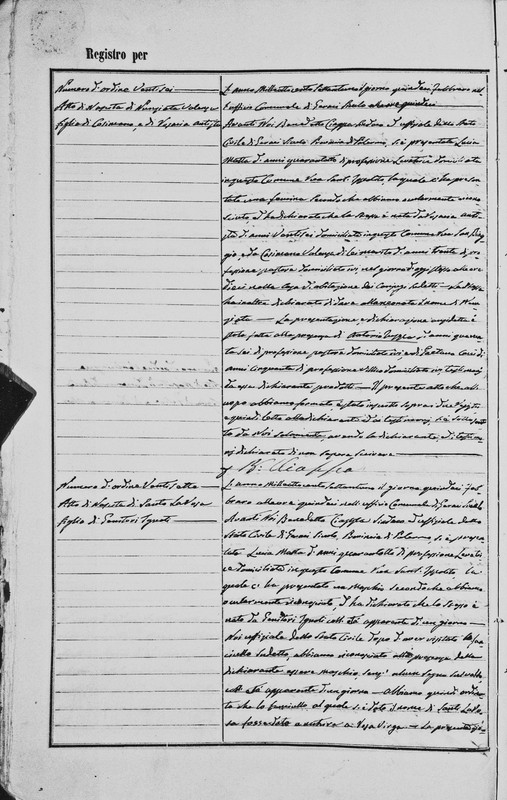 Registro per
Numero d'ordine Ventisei
Atto di Nascita di Nunziata Valenza
figlia di Casimano, e di Rosaria
L'anno Milleottocento settantuno il giorno quindici Febbraro nell'
ufficio Comunale di Geraci Siculo alle ore quindici
Avanti Noi Benedetto Chiappa Sindaco ed uffiziale dello Stato
Civile di Geraci Siculo Provincia di Palermo, si è presentata Lucia
Matta d'anni quarantotto di professione Levatrice domiciliata
in questo Comune Via Sant'Ippolito, la quale ci ha presen
tato una femina secondo che abbiamo ocularmente ricono
sciuto, ed ha dichiarato che la stessa è nata da Rosaria
d'anni Ventisei domiciliata in questo Comune Via San
e da Casimano Valenza di d'anni trenta di pro
fessione pastore domiciliato ivi, nel giorno d'oggi stesso alle ore
dieci nella casa d'abitazione dei Coniugi sudetti - La stessa
ha inoltre dichiarato di dare alla neonata il nome di Nun
ziata - La presentazione, e dichiarazione anzidetta è
stata fatta alla presenza di Antonio d'anni quaran
tasei di professione pastore domiciliato ivi, e di Gaetano di
anni Cinquanta di professione domiciliato ivi, testimonj
dalla dichiarante prodotti - Il presente atto che all'
uopo abbiamo formato è stato inserito sopra i due registri
e quindi letto alla dichiarante ed ai testimonj, si è sottoscrit
to da Noi solamente, avendo la dichiarante, ed i testimo
nj dichiarato di non sapere scrivere
B: Chiappa
Numero d'ordine Ventisette
Atto di Nascita di Santo La Rosa
figlio di Genitori Ignoti
L'anno Milleottocento settantuno il giorno quindici Feb
braro alle ore quindici nell'ufficio Comunale di Geraci Siculo
Avanti Noi Benedetto Chiappa Sindaco ed uffiziale dello
Stato Civile di Geraci Siculo Provincia di Palermo, si è presen
tata Lucia Matta d'anni quarantotto di professione Levatri
ce domiciliata in questo Comune Via Sant'Ippolito la
quale ci ha presentato un maschio secondo che abbiamo
ocularmente riconosciuto, ed ha dichiarato che lo stesso è
nato da Genitori Ignoti coll'età apparente di un giorno -
Noi uffiziale dello Stato Civile dopo d'aver visitato il fan
ciullo sudetto, abbiamo riconosciuto alla presenza della
dichiarante essere maschio, senz'alcun segno
coll'età apparente d'un giorno - Abbiamo quindi ordina
to che lo fanciullo al quale si è dato il nome di Santo La Ro
sa fosse dato a nutrice a Rosa - La presente